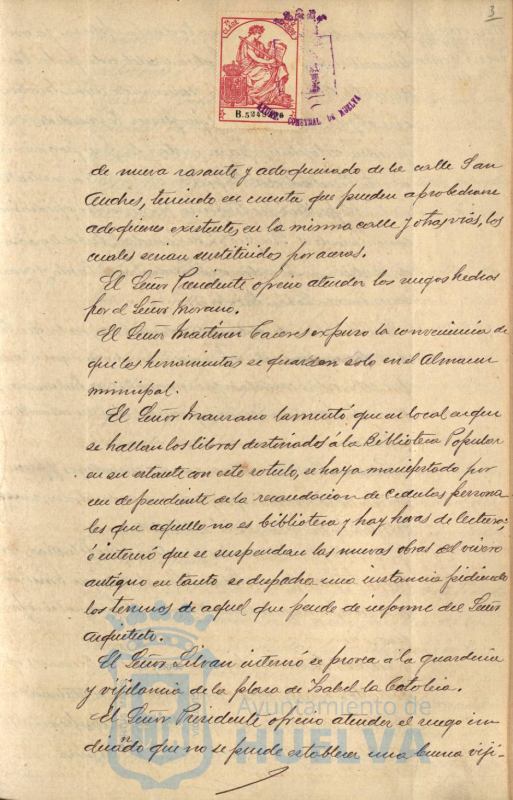 3
B.5249
AYUNT. CONSTNAL DE HUELVA
de nueva rasante y adoquinado de la calle San
Andres, teniendo en cuenta que pueden aprobecharse
adoquines existentes, en la misma calle y otras vias, los
cuales serian sustituidos por aceras.
El Señor Presidente ofrecio atender los ruegos hechos
por el Señor Morano.
El Señor Martinez Caceres expuso la conveniencia de
que las herramientas se guarden solo en el Almacen
municipal.
El Señor Manzano lamentó que en local en que
se hallan los libros destinados á la Biblioteca Popular
en su estante con este rotulo, se haya manifestado por
un dependiente de la recaudacion de cedulas persona
les que aquello no es biblioteca y hay horas de lectura;
é interesó que se suspendan las nuevas obras del vivero
antiguo en tanto se despacha una instancia pidiendo
los terrenos de aquel que pende de informe del Señor
Arquitecto.
El Señor Silvan interesó se provea á la guarderia
y vijilancia de la plaza de Isabel la Catolica.
El Señor Presidente ofrecio atender el ruego in-
dicando que no se puede establecer una buena viji-
Ayuntamiento de
HUELVA